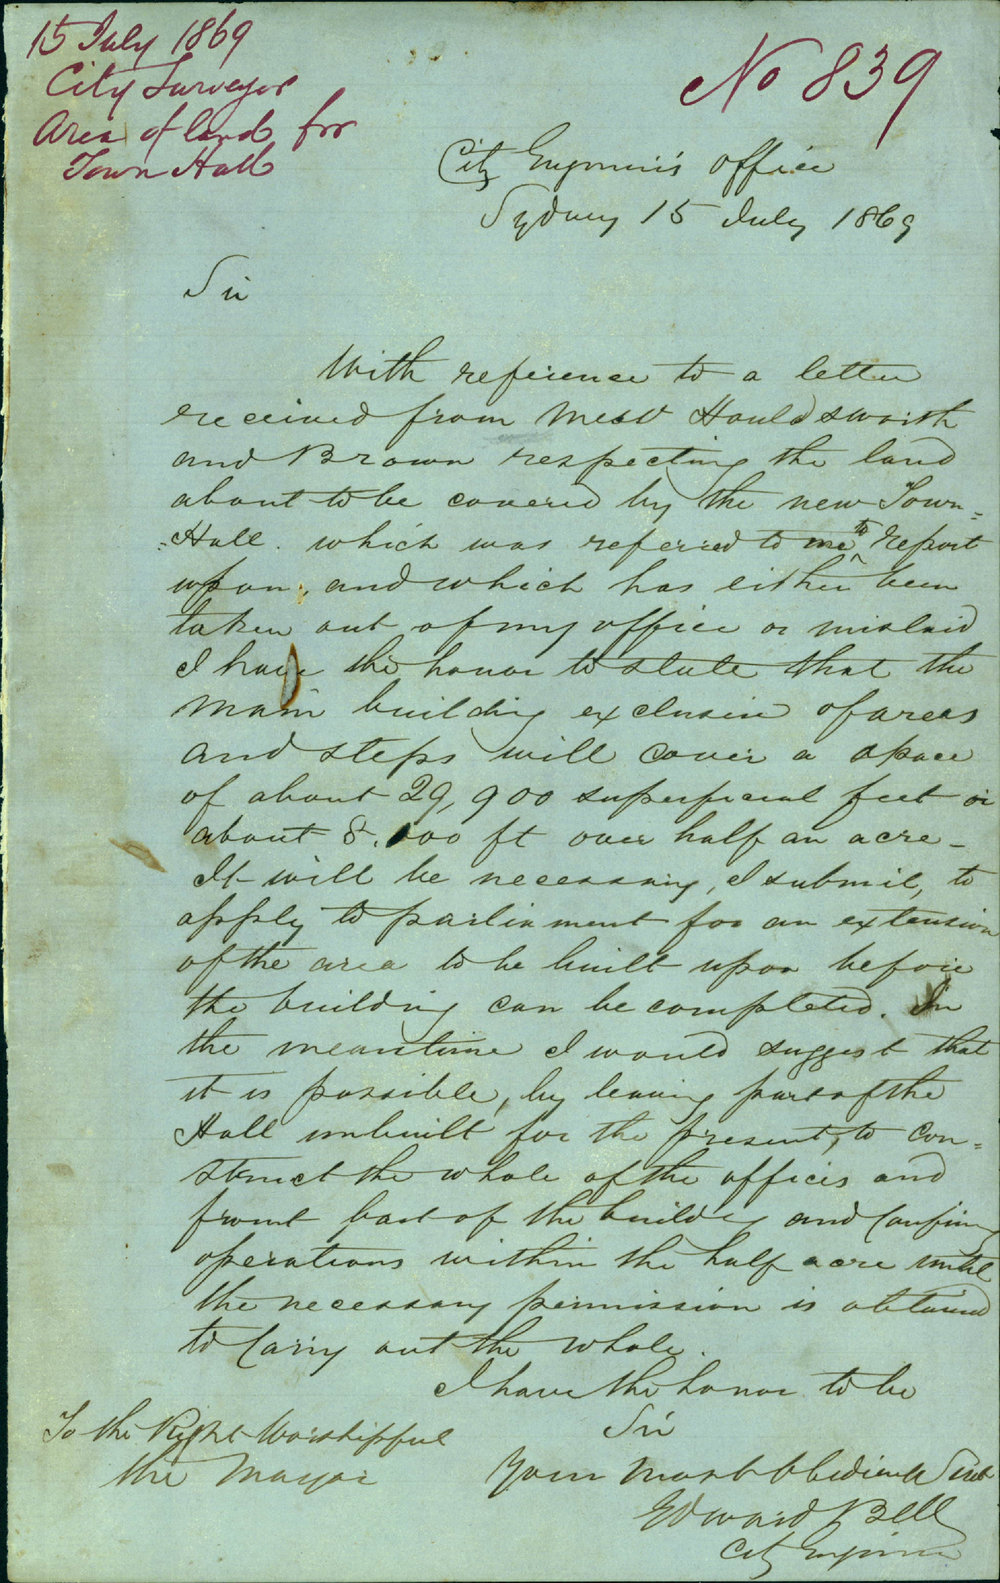 15 July 1869
City Surveyor
Area of land for
Town Hall
No 839
City Engineer's Office
Sydney 15 July 1869
Sir
With reference to a letter
received from Messrs Houldsworth
and Brown respecting the land
about to be covered by the new Town=
=Hall. which was referred to me to report
upon, and which has either been
taken out of my office or mislaid
I have the honor to state that the
main building exclusive of areas
and steps will cover a space
of about 29,900 superficial feet or
about 8.000 ft over half an acre_
It will be necessary, I submit, to
apply to parliament for an extension
of the area to be built upon before
the building can be completed. In
the meantime I would suggest that
it is possible, by leaving part of the
Hall unbuilt for the present, to con=
struct the whole of the offices and
front part of the building and confining
operations within the half acre until
the necessary permission is obtained
to carry out the whole.
I have the honor to be
Sir
Your most Obedient Servt
Edward Bell
City Engineer
To the Right Worshipful
the Mayor